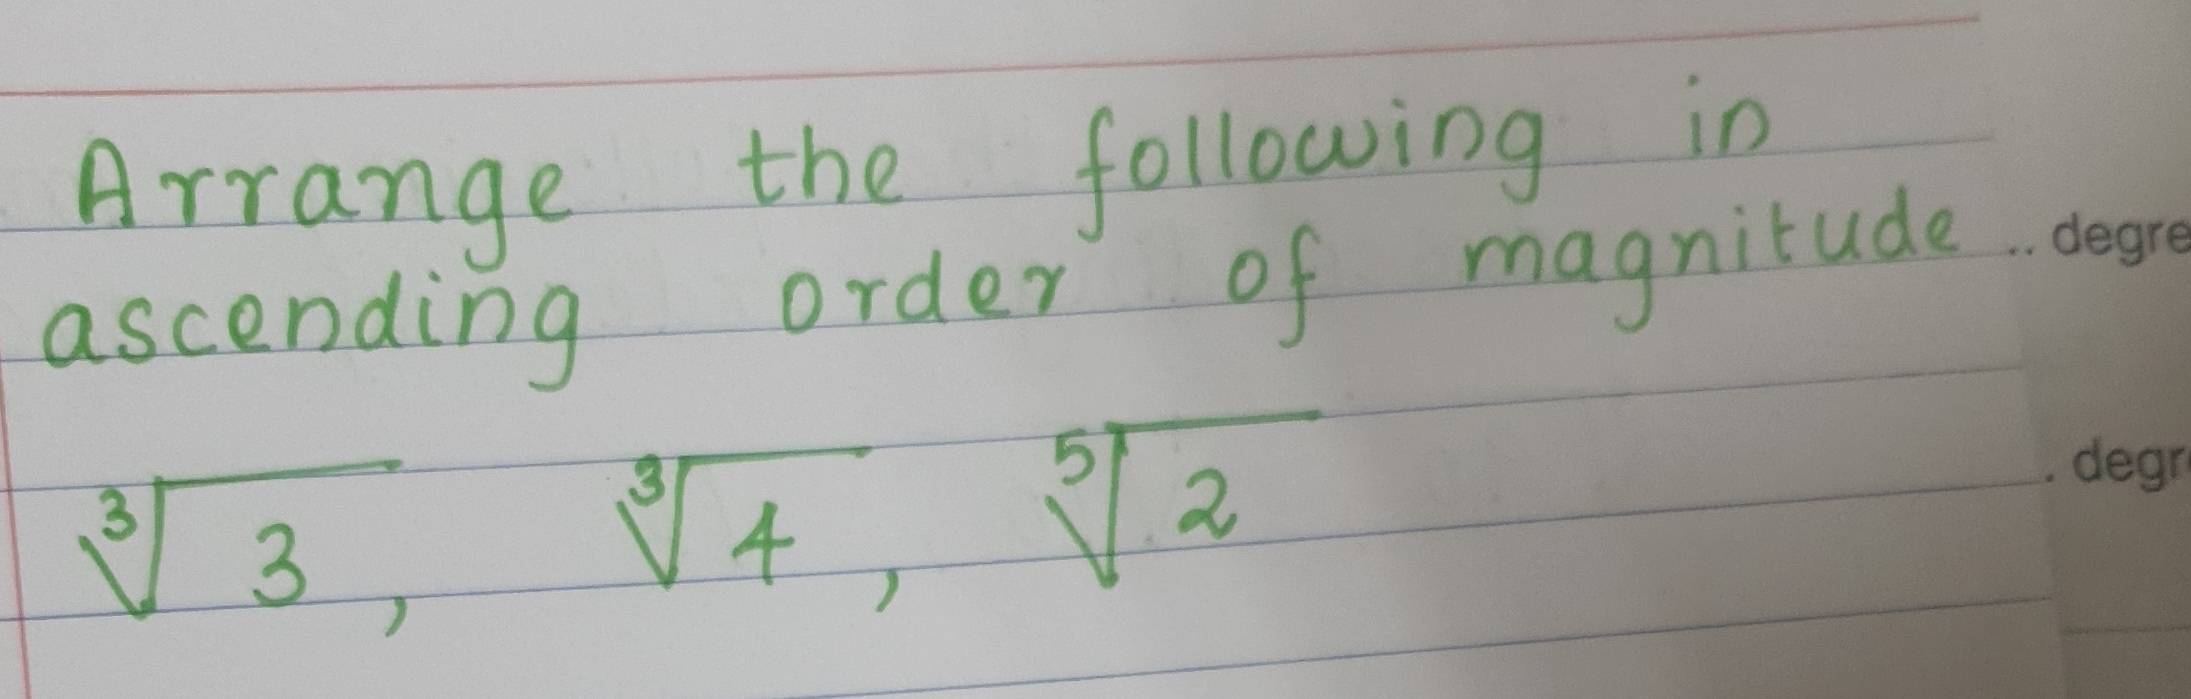 Arrange the following in
ascending order of magnitude
.. degre
∛3, ∛4, ⁵√2
. degr